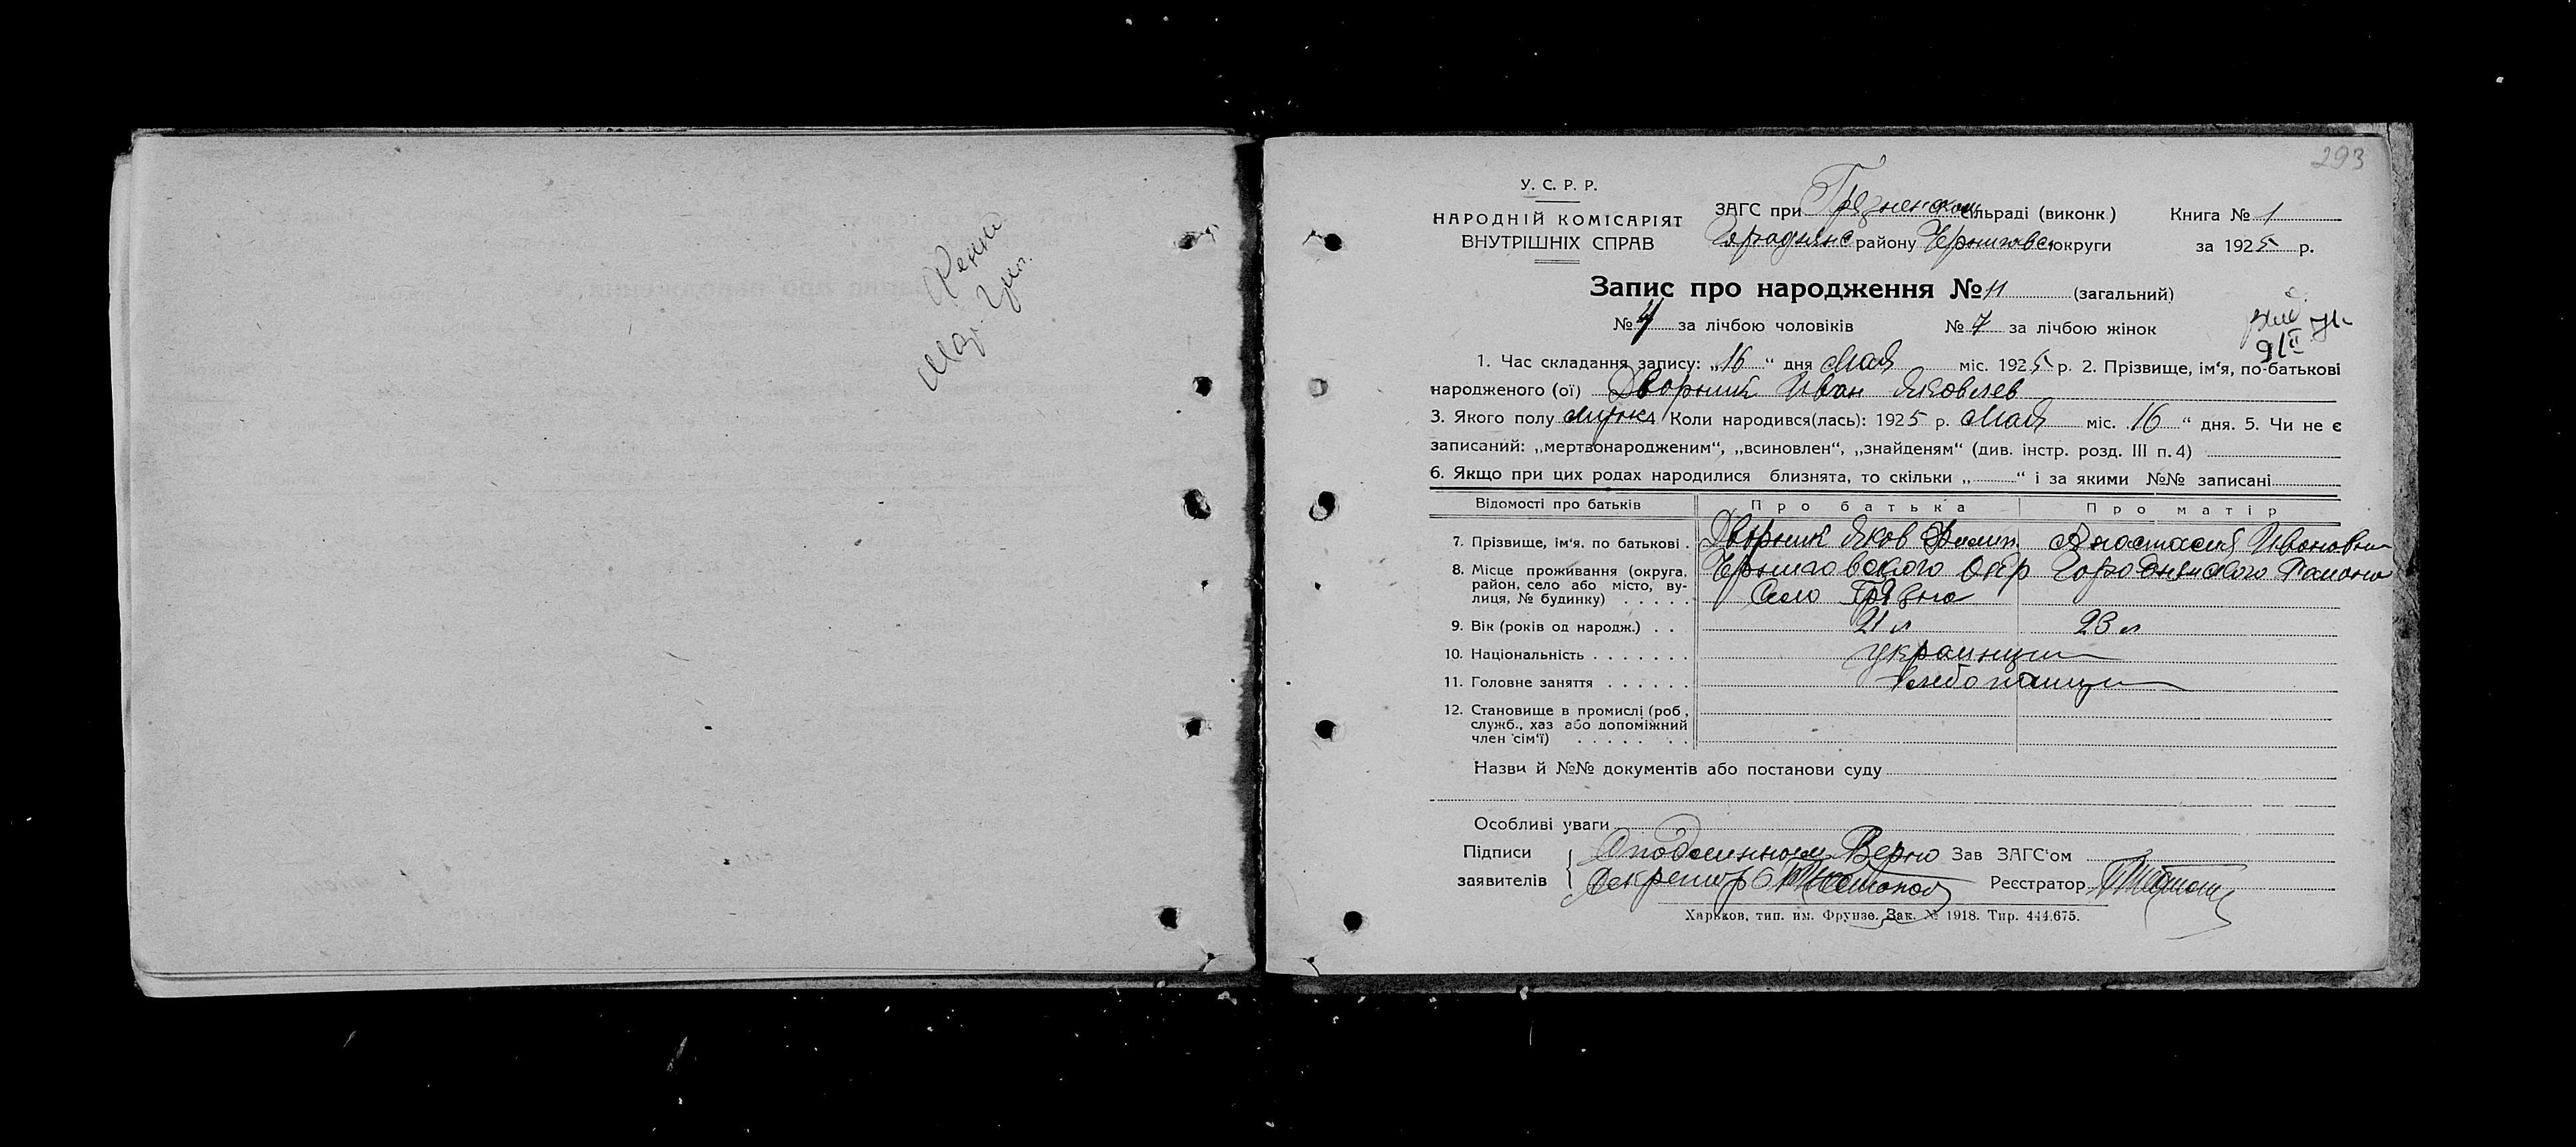 293
У. С. Р. Р.
НАРОДНІЙ КОМІСАРІЯТ
ВНУТРІШНІХ СПРАВ
ЗАГС при Грязненском сільраді (виконк.) Книга № 1
Городнянс району Черниговс округи за 1925 р.
Запис про народження № 11 (загальний)
№ 4 за лічбою чоловіків № 7 за лічбою жінок
1. Час складання запису: „16“ дня Мая міс. 1925 р. 2. Прізвище, ім‘я, по-батькові
народженого (ої) Дворник Иван Яковлев
3. Якого полу мужс Коли народився(лась): 1925 р. Мая міс. 16 “ дня. 5. Чи не є
записаний: „мертвонародженим“, „всиновлен“, „знайденям“ (див. інстр. розд. III п. 4)
6. Якщо при цих родах народилися близнята, то скільки „ “ і за якими №№ записані
Відомості про батьків Про батька Про матір
7. Прізвище, ім‘я. по батькові . Дворник Яков Филип. Анастасия Ивановна
8. Місце проживання (округа, Черниговского Окр Городнянского Района
район, село або місто, ву-
лиця, № будинку) . . . . . Село Грязна
9. Вік (років од народж.) . . 21 л 23 л
10. Національність . . . . . . . украинци
11. Головне заняття . . . . . . хлебопашци
12. Становище в промислі (роб.,
служб., хаз або допоміжний
член сім‘ї) . . . . . . .
Назви й №№ документів або постанови суду
Особливі уваги
Підписи
заявителів
С подлинным Верно Зав ЗАГС‘ом
Секретарь Реєстратор
Харьков, тип. им. Фрунзе. Зак. № 1918. Тир. 444.675.